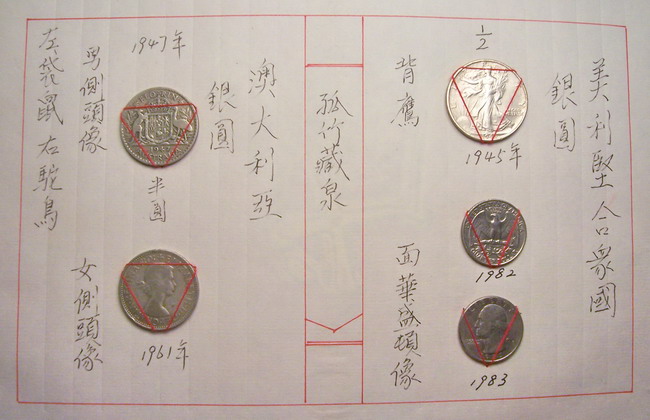 美利堅合衆國
銀圓
½
1945年
1982
1983
背鷹
面華盛頓像
孤竹藏泉
澳大利亞
銀圓
1947年
半圓
1961年
男側頭像
女側頭像
左袋鼠右駝鳥